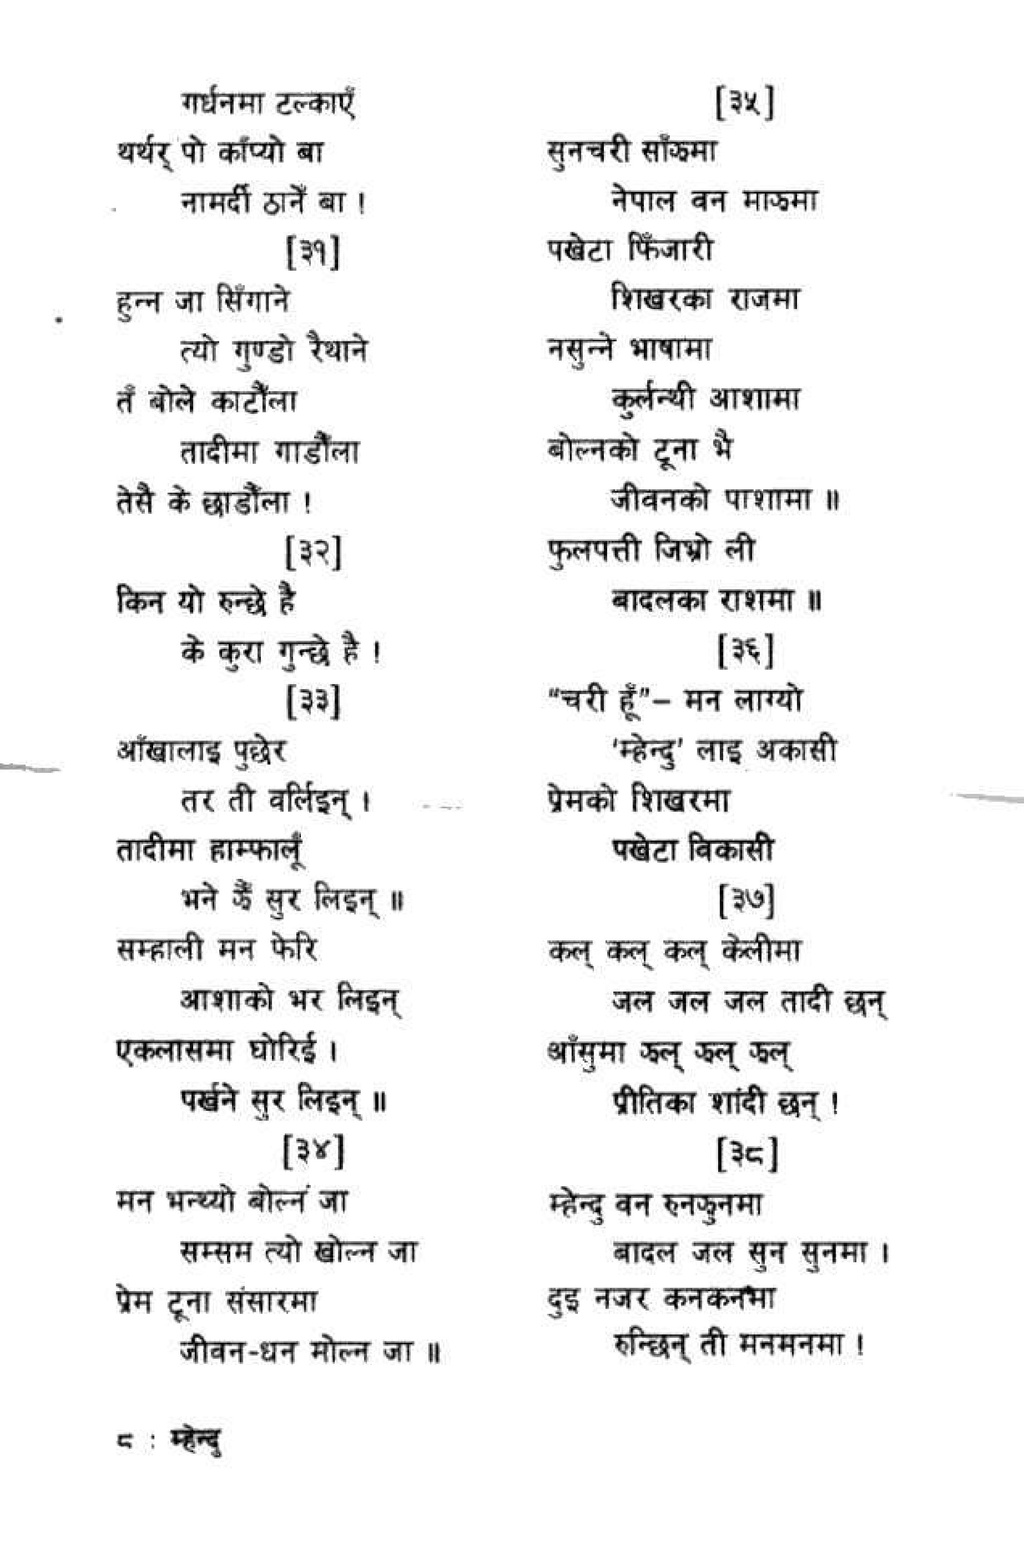 गर्धनमा टल्काएँ
थर्थर् पो काँप्यो बा
नामर्दी ठानेँ बा !
[३१]
हुन्न जा सिँगाने
त्यो गुण्डो रैथाने
तँ बोले काटौँला
तादीमा गाडौँला
तेसै के छाडौँला !
[३२]
किन यो रुन्छे है
के कुरा गुन्छे है !
[३३]
आँखालाइ पुछेर
तर ती वर्लिइन् ।
तादीमा हाम्फालूँ
भने झैँ सुर लिइन् ॥
सम्हाली मन फेरि
आशाको भर लिइन्
एकलासमा घोरिई ।
पर्खने सुर लिइन् ॥
[३४]
मन भन्थ्यो बोल्न जा
सम्सम त्यो खोल्न जा
प्रेम टूना संसारमा
जीवन-धन मोल्न जा ॥
८ : म्हेन्दु
[३५]
सुनचरी साँझमा
नेपाल वन माझमा
पखेटा फिँजारी
शिखरका राजमा
नसुन्ने भाषामा
कुर्लन्थी आशामा
बोल्नको टूना भै
जीवनको पाशामा ॥
फुलपत्ती जिभ्रो ली
बादलका राशमा ॥
[३६]
“चरी हूँ”– मन लाग्यो
'म्हेन्दु' लाइ अकासी
प्रेमको शिखरमा
पखेटा विकासी
[३७]
कल् कल् कल् केलीमा
जल जल जल तादी छन्
आँसुमा झल् झल् झल्
प्रीतिका शांदी छन् !
[३८]
म्हेन्दु वन रुनझुनमा
बादल जल सुन सुनमा ।
दुइ नजर कनकनमा
रुन्छिन् ती मनमनमा !